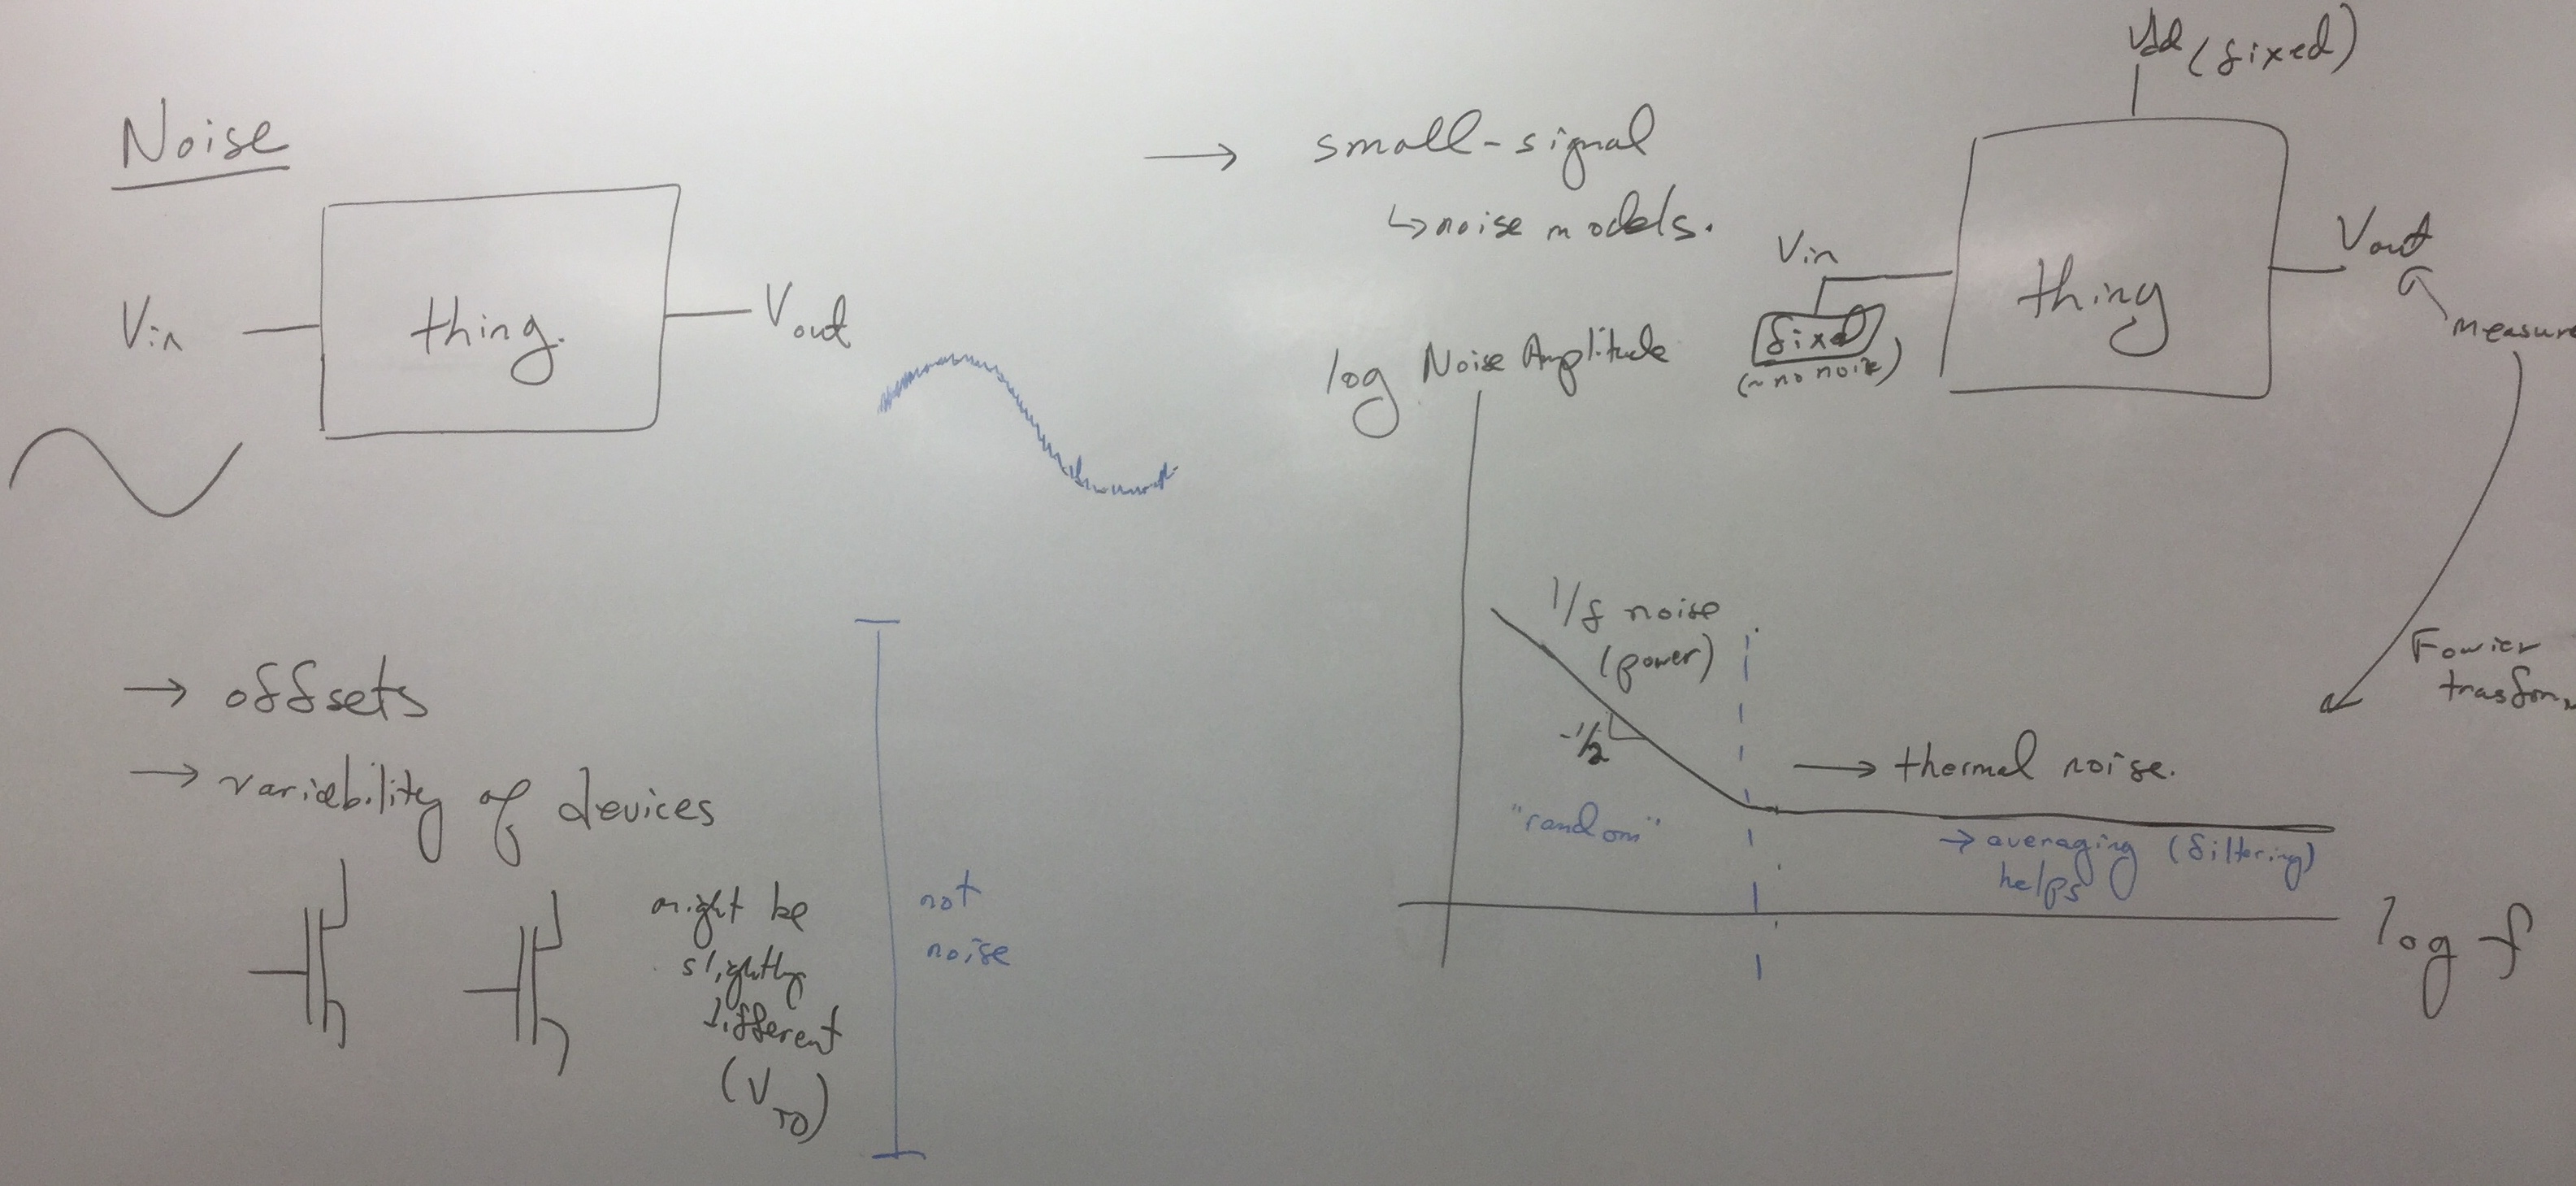 Noise
Vin
thing.
Vout
→ offsets
→ variability of devices
might be
slightly
different
(VT0)
not
noise
→ small-signal
↳ noise models.
Vdd (fixed)
Vin
fixed
(~no noise)
thing
Vout
measure
Fourier
trasform
log Noise Amplitude
1/f noise
(power)
-1/2
"random"
→ thermal noise.
→ averaging (filtering)
helps
log f